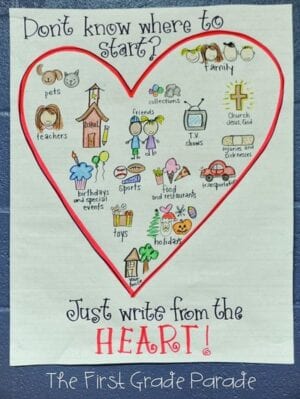 Don't know where to
start?
family
pets
collections
friends
Church
Jesus, God
teachers
School
T.V.
shows
injuries and
sicknesses
birthdays
and special
events
sports
food
and restaurants
transportation
toys
holidays
your
house
Just write from the
HEART!
The First Grade Parade